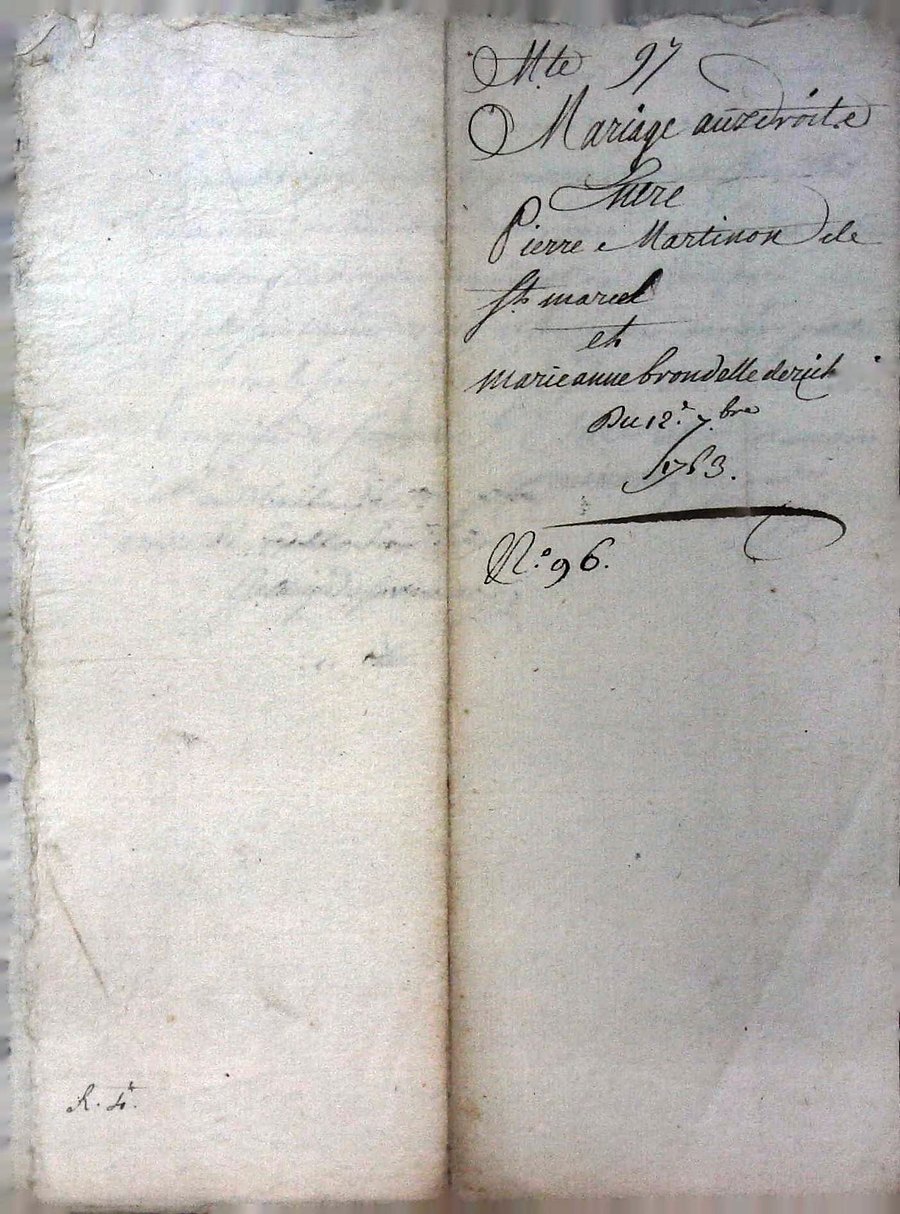 M.te 97
Mariage aux droits
Entre
Pierre Martinon de
St. marcel
et
marie anne brondelle de
Du 12.e 7.bre
1763.
N.o 96.
R. 4.t